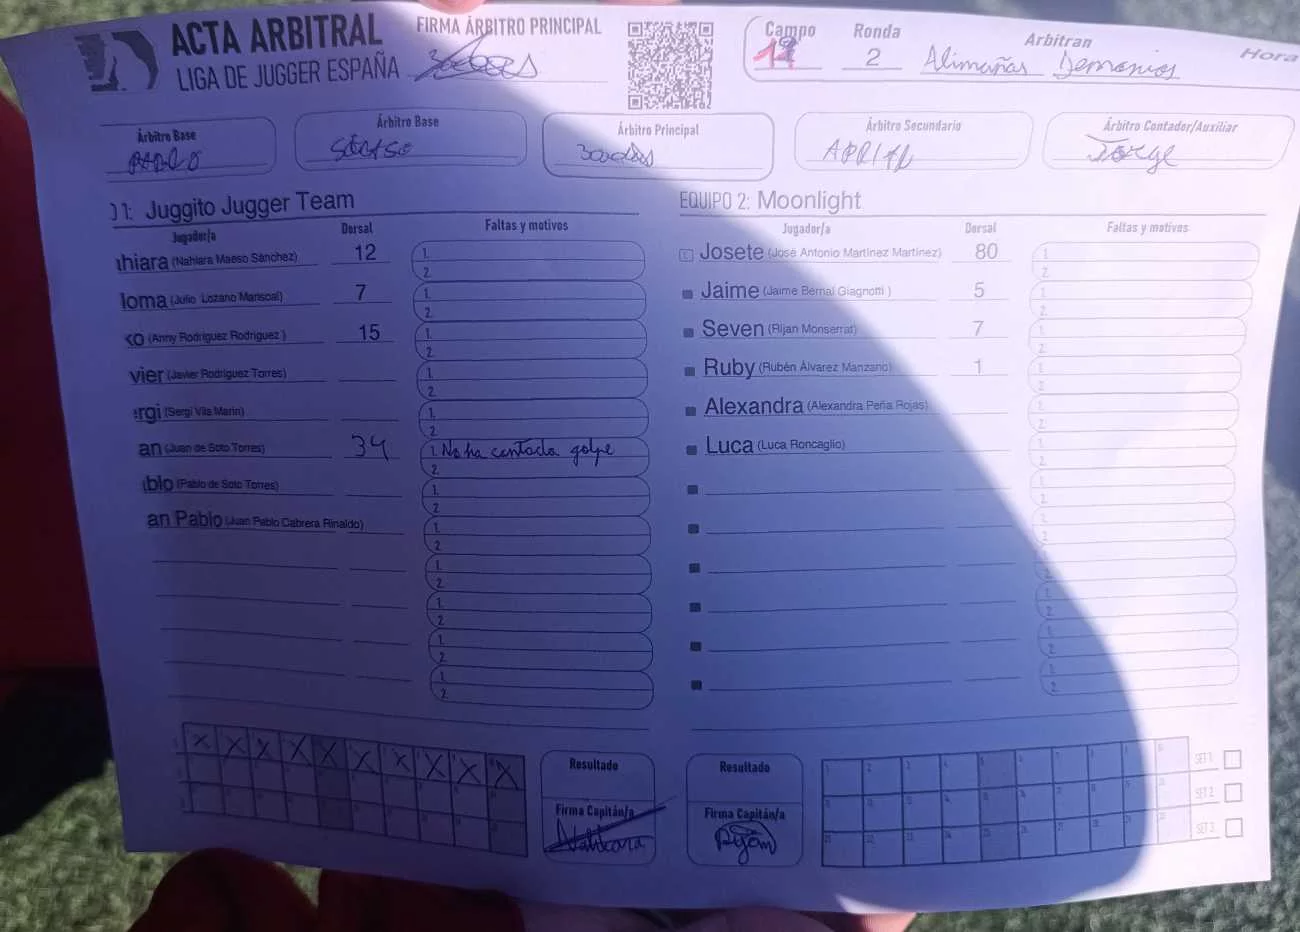 ACTA ARBITRAL
LIGA DE JUGGER ESPAÑA
FIRMA ÁRBITRO PRINCIPAL
Campo
Ronda
2
Arbitran
Alimañas Demonios
Hora
Árbitro Base
PABLO
Árbitro Base
Árbitro Principal
Árbitro Secundario
Árbitro Contador/Auxiliar
Jorge
O 1: Juggito Jugger Team
Jugador/a Dorsal Faltas y motivos
hiara (Nahiara Maeso Sánchez) 12 1.
2.
loma (Julio Lozano Mariscal) 7 1.
2.
ko (Anny Rodríguez Rodríguez ) 15 1.
2.
vier (Javier Rodríguez Torres) 1.
2.
ergi (Sergi Vila Marín) 1.
2.
an (Juan de Soto Torres) 34 1. No ha contado golpe
2.
blo (Pablo de Soto Torres) 1.
2.
an Pablo (Juan Pablo Cabrera Rinaldo) 1.
2.
1.
2.
1.
2.
1.
2.
1.
2.
EQUIPO 2: Moonlight
Jugador/a Dorsal Faltas y motivos
Josete (José Antonio Martínez Martínez) 80 1.
2.
Jaime (Jaime Bernal Giagnotti ) 5 1.
2.
Seven (Rijan Monserrat) 7 1.
2.
Ruby (Rubén Álvarez Manzano) 1 1.
2.
Alexandra (Alexandra Peña Rojas) 1.
2.
Luca (Luca Roncaglio) 1.
2.
1.
2.
1.
2.
1.
2.
1.
2.
1.
2.
1.
2.
X X X X X X X X X X
Resultado
Firma Capitán/a
Nahiara
Resultado
Firma Capitán/a
Ryan
SET 1
SET 2
SET 3